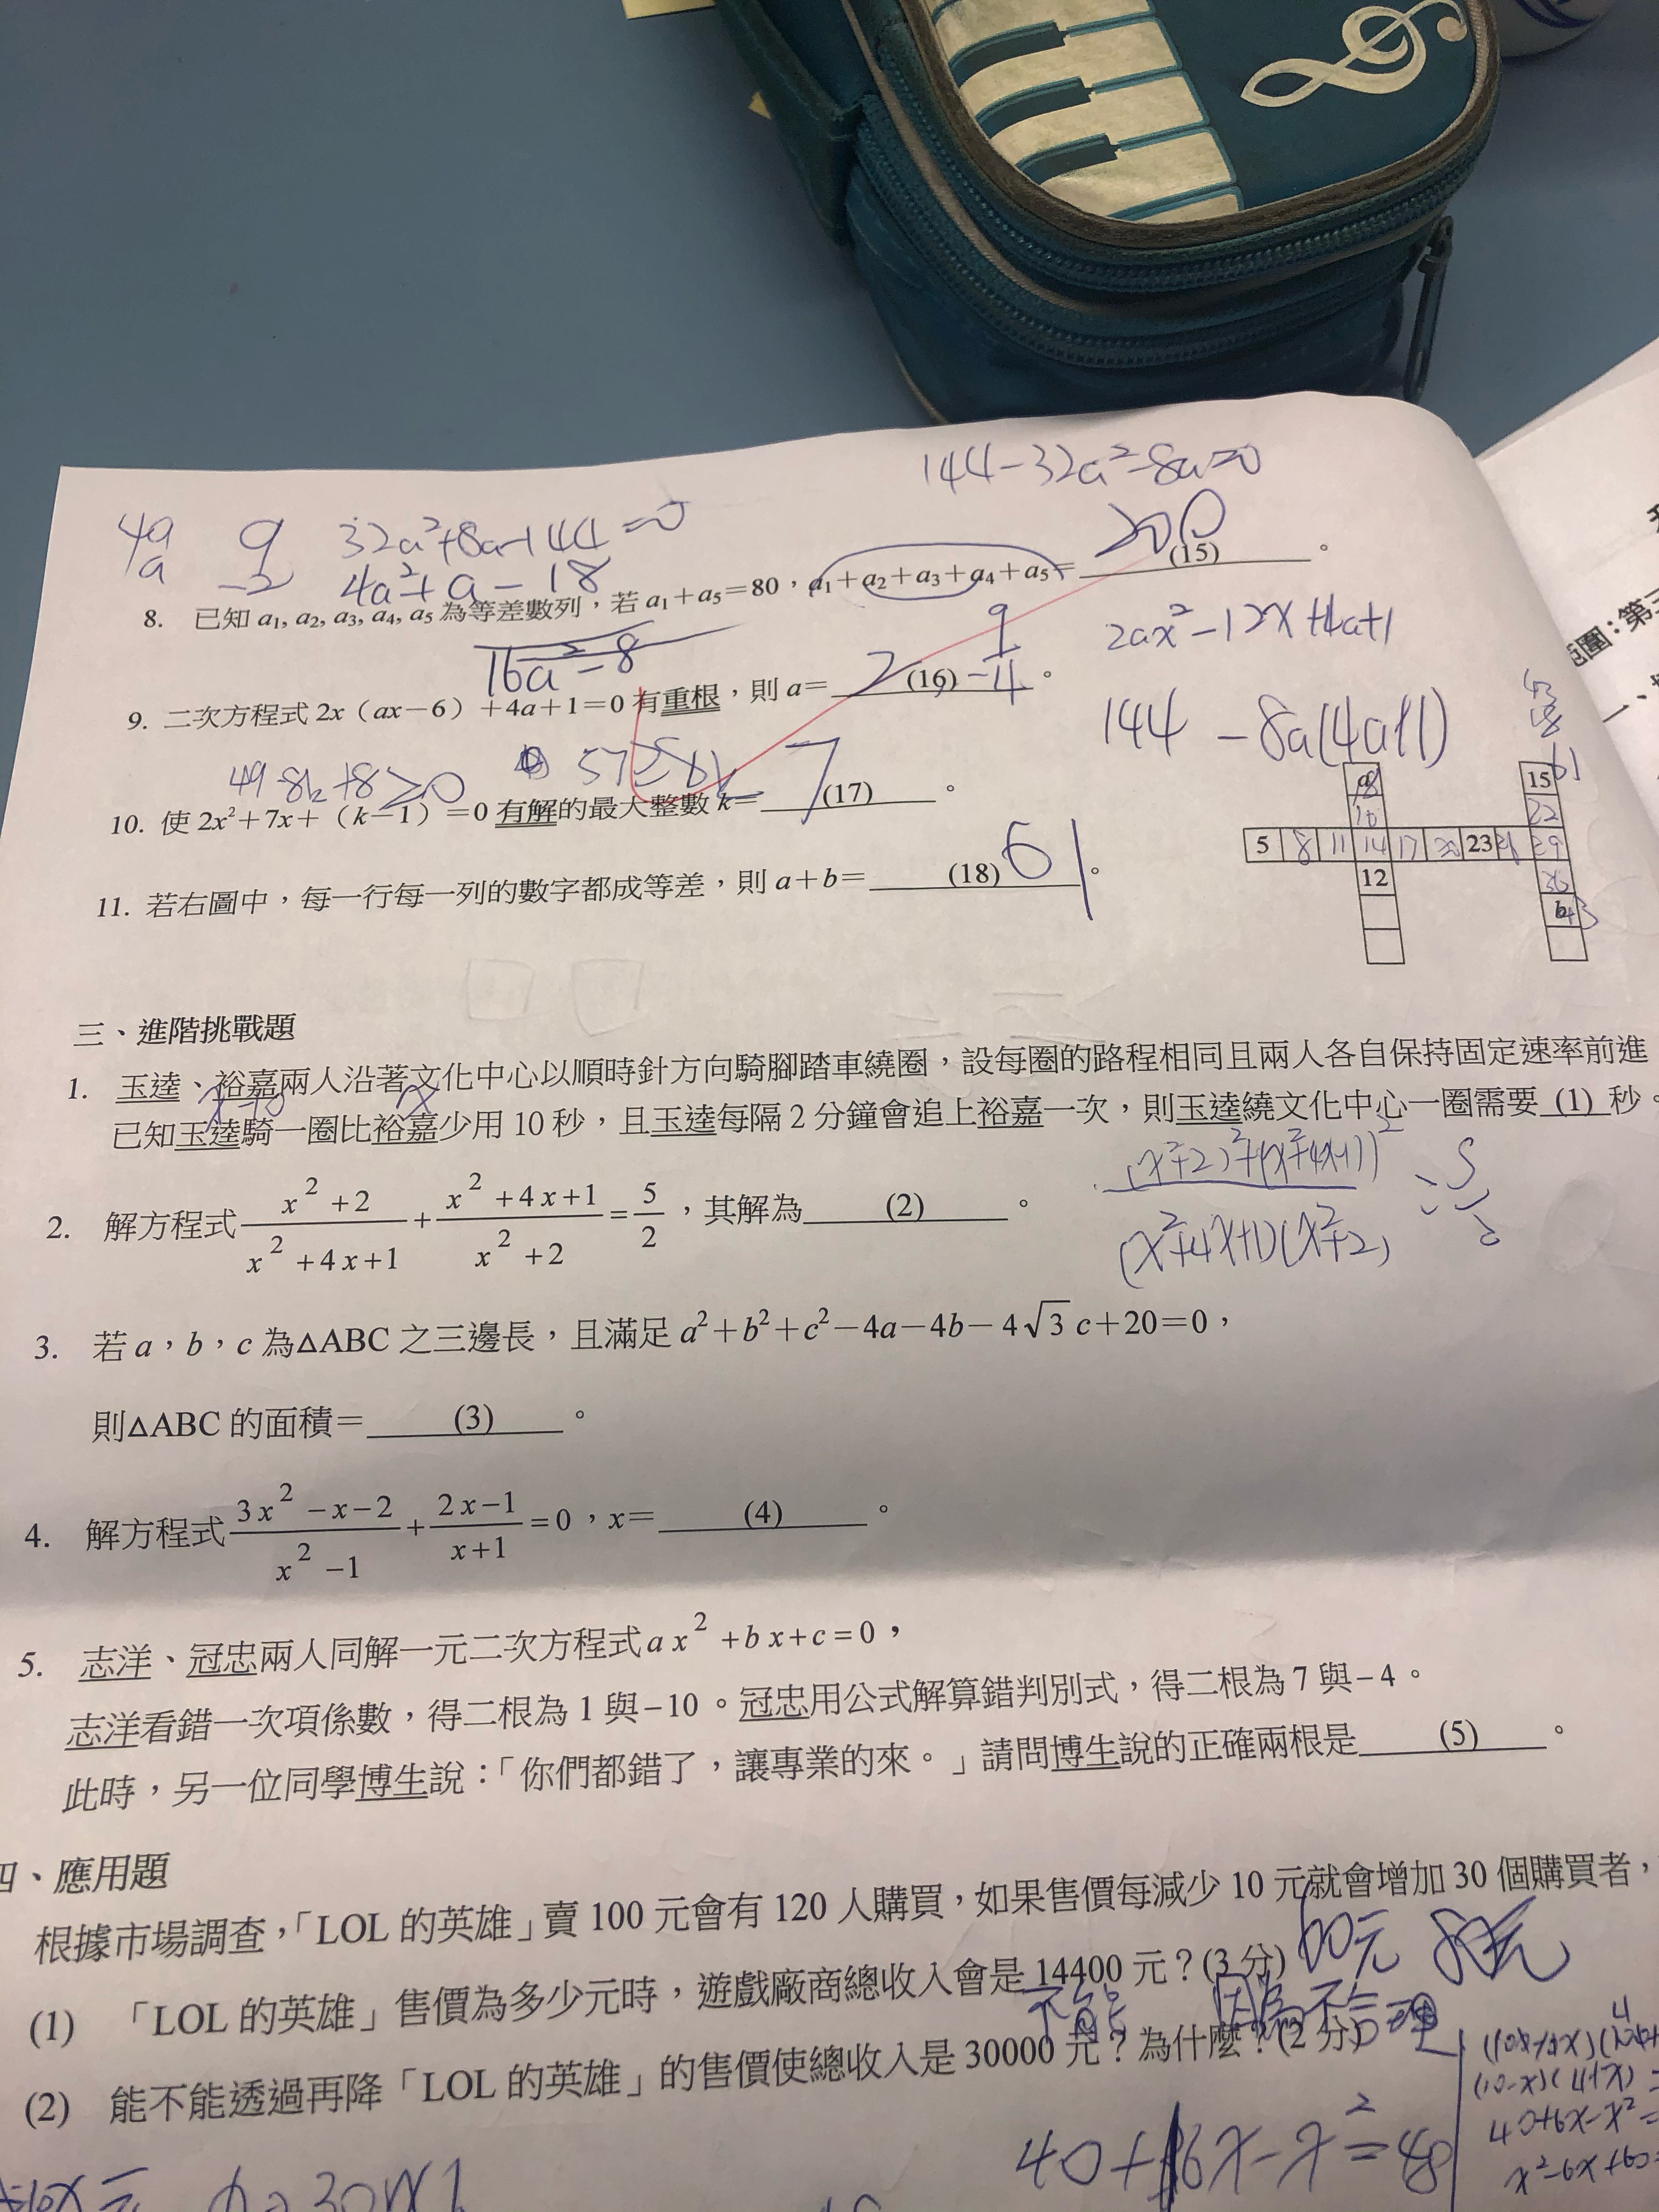 144-32a²-8a=0
4a 9 32a²+8a-144=0
a -2 4a²+a-18
8. 已知 a₁, a₂, a₃, a₄, a₅ 為等差數列，若 a₁+a₅=80，a₁+a₂+a₃+a₄+a₅= 200 (15) 。
16a²-8
2ax²-12x+4a+1
9. 二次方程式 2x（ax-6）+4a+1=0 有重根，則 a= 2 (16) -9/4 。
144-8a(4a+1)
49-8k+8≥0 57≥8k
10. 使 2x²+7x+（k-1）=0 有解的最大整數 k= 7 (17) 。
11. 若右圖中，每一行每一列的數字都成等差，則 a+b= (18) 61 。
a 18 15 61
16 22
5 8 11 14 17 20 23 26 29
12 36
b 43
三、進階挑戰題
1. 玉逵、裕嘉兩人沿著文化中心以順時針方向騎腳踏車繞圈，設每圈的路程相同且兩人各自保持固定速率前進
x
已知玉逵騎一圈比裕嘉少用 10 秒，且玉逵每隔 2 分鐘會追上裕嘉一次，則玉逵繞文化中心一圈需要 (1) 秒。
2. 解方程式 (x²+2)/(x²+4x+1) + (x²+4x+1)/(x²+2) = 5/2，其解為 (2) 。
(x²+2)²+(x²+4x+1)²
(x²+4x+1)(x²+2)
3. 若 a，b，c 為△ABC 之三邊長，且滿足 a²+b²+c²-4a-4b-4√3 c+20=0，
則△ABC 的面積= (3) 。
4. 解方程式 (3x²-x-2)/(x²-1) + (2x-1)/(x+1) =0，x= (4) 。
5. 志洋、冠忠兩人同解一元二次方程式 ax²+bx+c=0，
志洋看錯一次項係數，得二根為 1 與-10。冠忠用公式解算錯判別式，得二根為 7 與-4。
此時，另一位同學博生說：「你們都錯了，讓專業的來。」請問博生說的正確兩根是 (5) 。
四、應用題
根據市場調查，「LOL 的英雄」賣 100 元會有 120 人購買，如果售價每減少 10 元就會增加 30 個購買者，
(1) 「LOL 的英雄」售價為多少元時，遊戲廠商總收入會是 14400 元？(3 分) 60元 80元
不能 因為不合理
(2) 能不能透過再降「LOL 的英雄」的售價使總收入是 30000 元？為什麼？(2 分)
(10-x)(4+x)=
40+6x-x²=
40+6x-x²=48
x²-6x+60